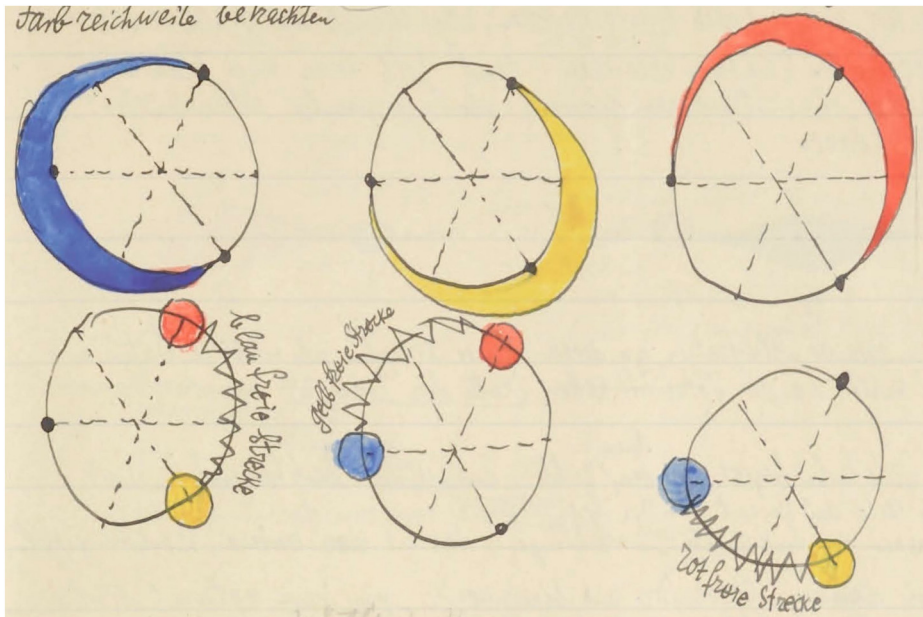 Farbreichweite betrachten
blau freie Strecke
gelb freie Strecke
rot freie Strecke